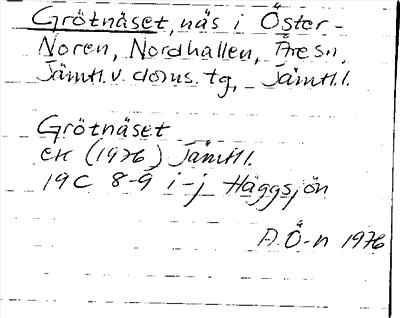 Grötnäset, näs i Öster-
Noren, Nordhallen, Åre sn,
Jämtl. v. doms. tg, Jämtl. l.
Grötnäset
ek (1976) Jämtl l.
19C 8-9 i-j Häggsjön
A.Ö-n 1976